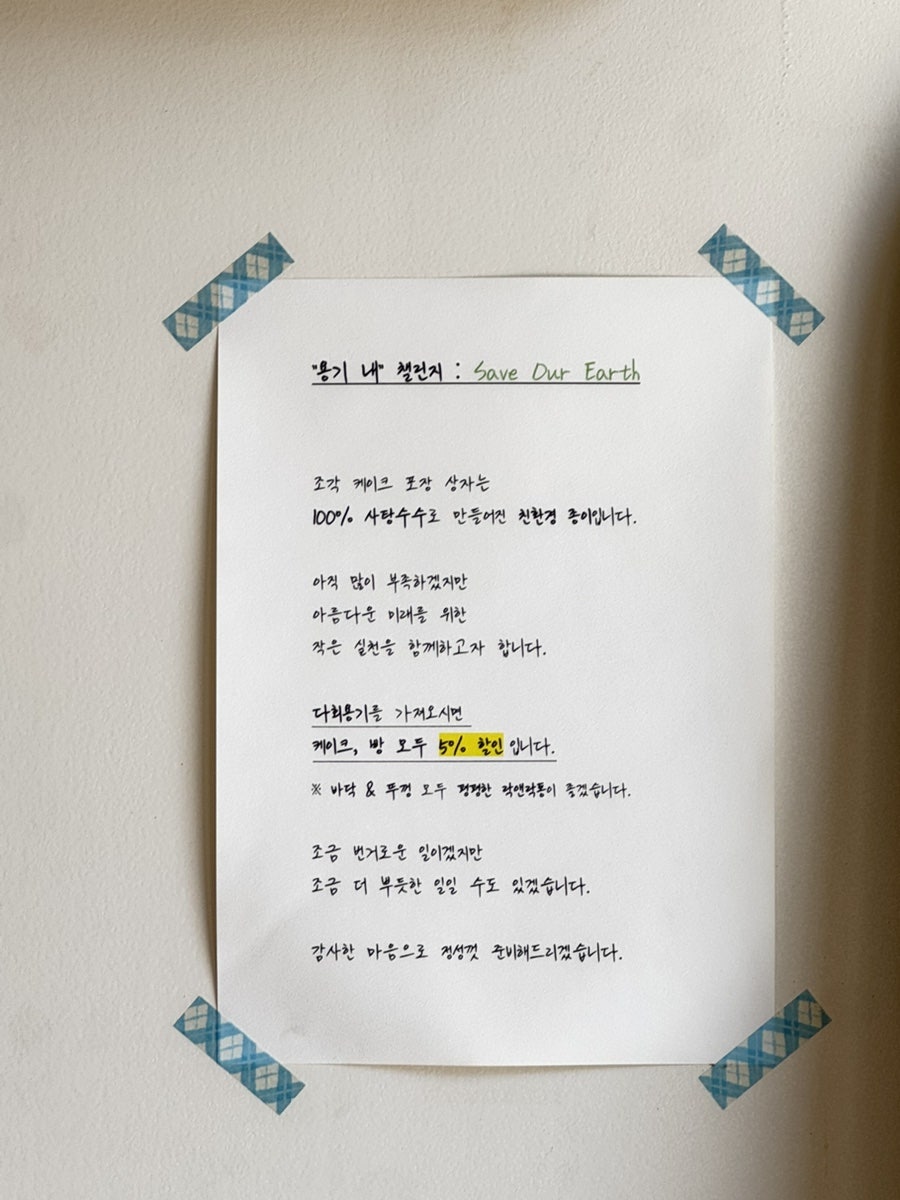 "용기 내" 챌린지 : Save Our Earth
조각 케이크 포장 상자는
100% 사탕수수로 만들어진 친환경 종이입니다.
아직 많이 부족하겠지만
아름다운 미래를 위한
작은 실천을 함께하고자 합니다.
다회용기를 가져오시면
케이크, 빵 모두 5% 할인입니다.
※ 바닥 & 뚜껑 모두 평평한 락앤락통이 좋겠습니다.
조금 번거로운 일이겠지만
조금 더 뿌듯한 일일 수도 있겠습니다.
감사한 마음으로 정성껏 준비해드리겠습니다.